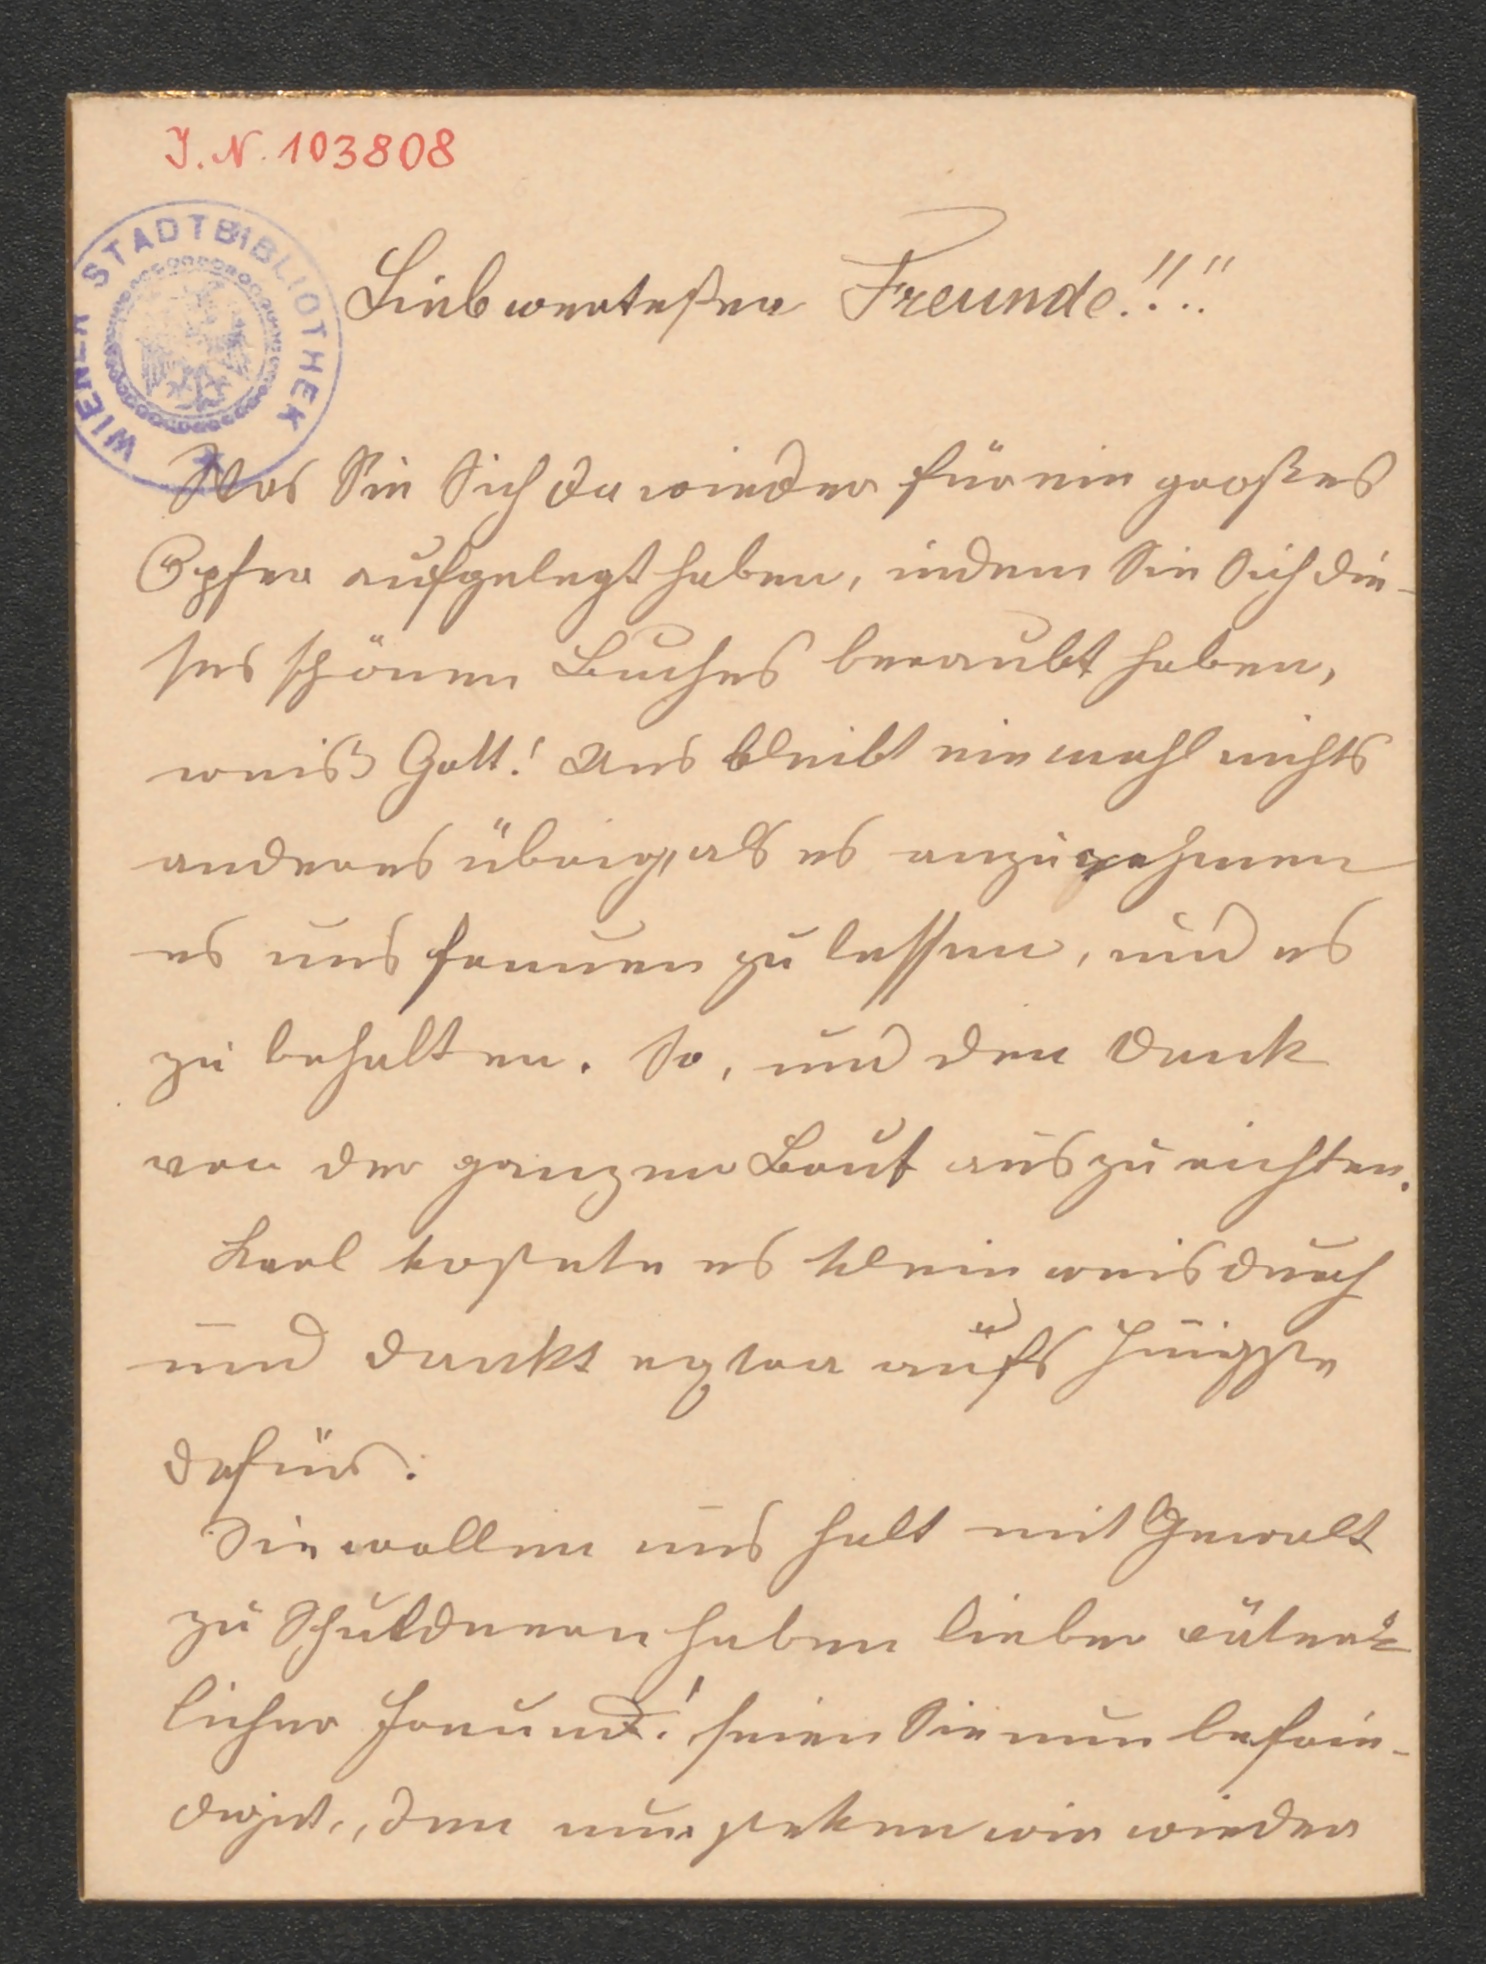 J. N. 103808
WIENER STADTBIBLIOTHEK
Liebwertester Freunde!!!!
Was Sie Sich da wieder für ein großes
Opfer aufgelegt haben, indem Sie Sich die-
ses schönen Buches beraubt haben,
weiß Gott! Uns bleibt einmahl nichts
anderes übrig, als es anzunehmen
es uns freuen zu lassen, und es
zu behalten. So, und den Dank
von der ganzen Brut auszurichten.
Karl kostete es kleinweis durch
und dankt extra aufs Innigste
dafür.
Sie wollen uns halt mit Gewalt
zu Schuldnern haben lieber väter-
licher Freund! seien Sie nun befrie-
digt, denn nun stehen wir wieder